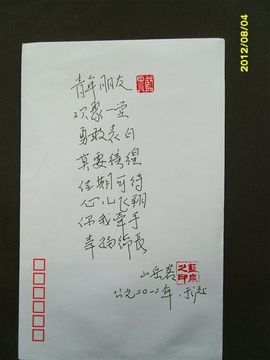 2012/08/04
青年朋友
欢聚一堂
勇敢表白
莫要徬徨
佳期可待
心儿飞翔
你我牵手
幸福绵長
山岳岩
公元二〇一二年